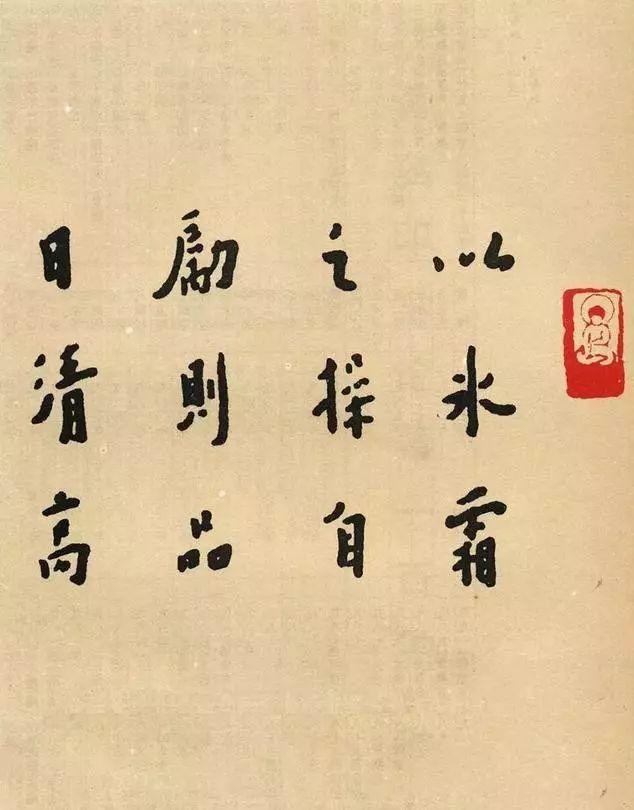 以氷霜
之操自
勵則品
日清高